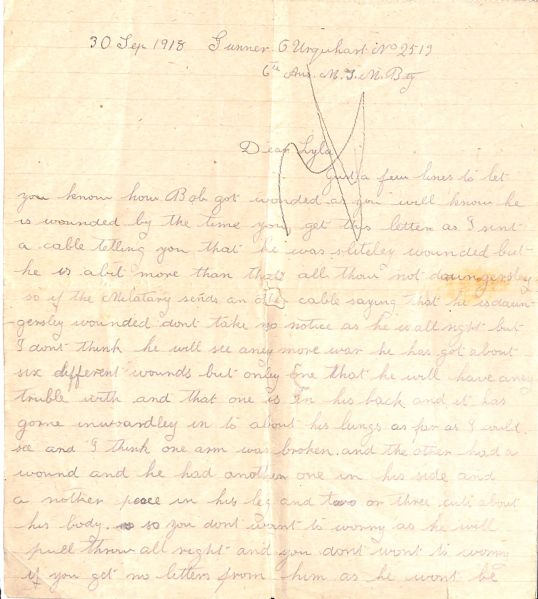 30 Sep 1918 Gunner G Urquhart No 2513
6th Aus. M. T. M. Bty
Dear Lyla
Just a few lines to let
you know how Bob got wonded as you will know he
is wounded by the time you get this letter as I sent
a cable telling you that he was sliteley wounded but
he is abit more than that all thow not daungersley
so if the Melatary sends an other cable saying that he is daun-
-gersley wounded dont take no notice as he is all right but
I dont think he will see aney more war he has got about
six different wounds but onley one that he will have aney
truble with and that one is in his back and it has
gone inwardley in to about his lungs as far as I could
see and I think one arm was broken. and the other had a
wound and he had another one in his side and
a nother peace in his leg and two or three cuts about
his body. so you dont want to worry as he will
pull throw all right and you dont wont to worry
if you get no letters from him as he wont be